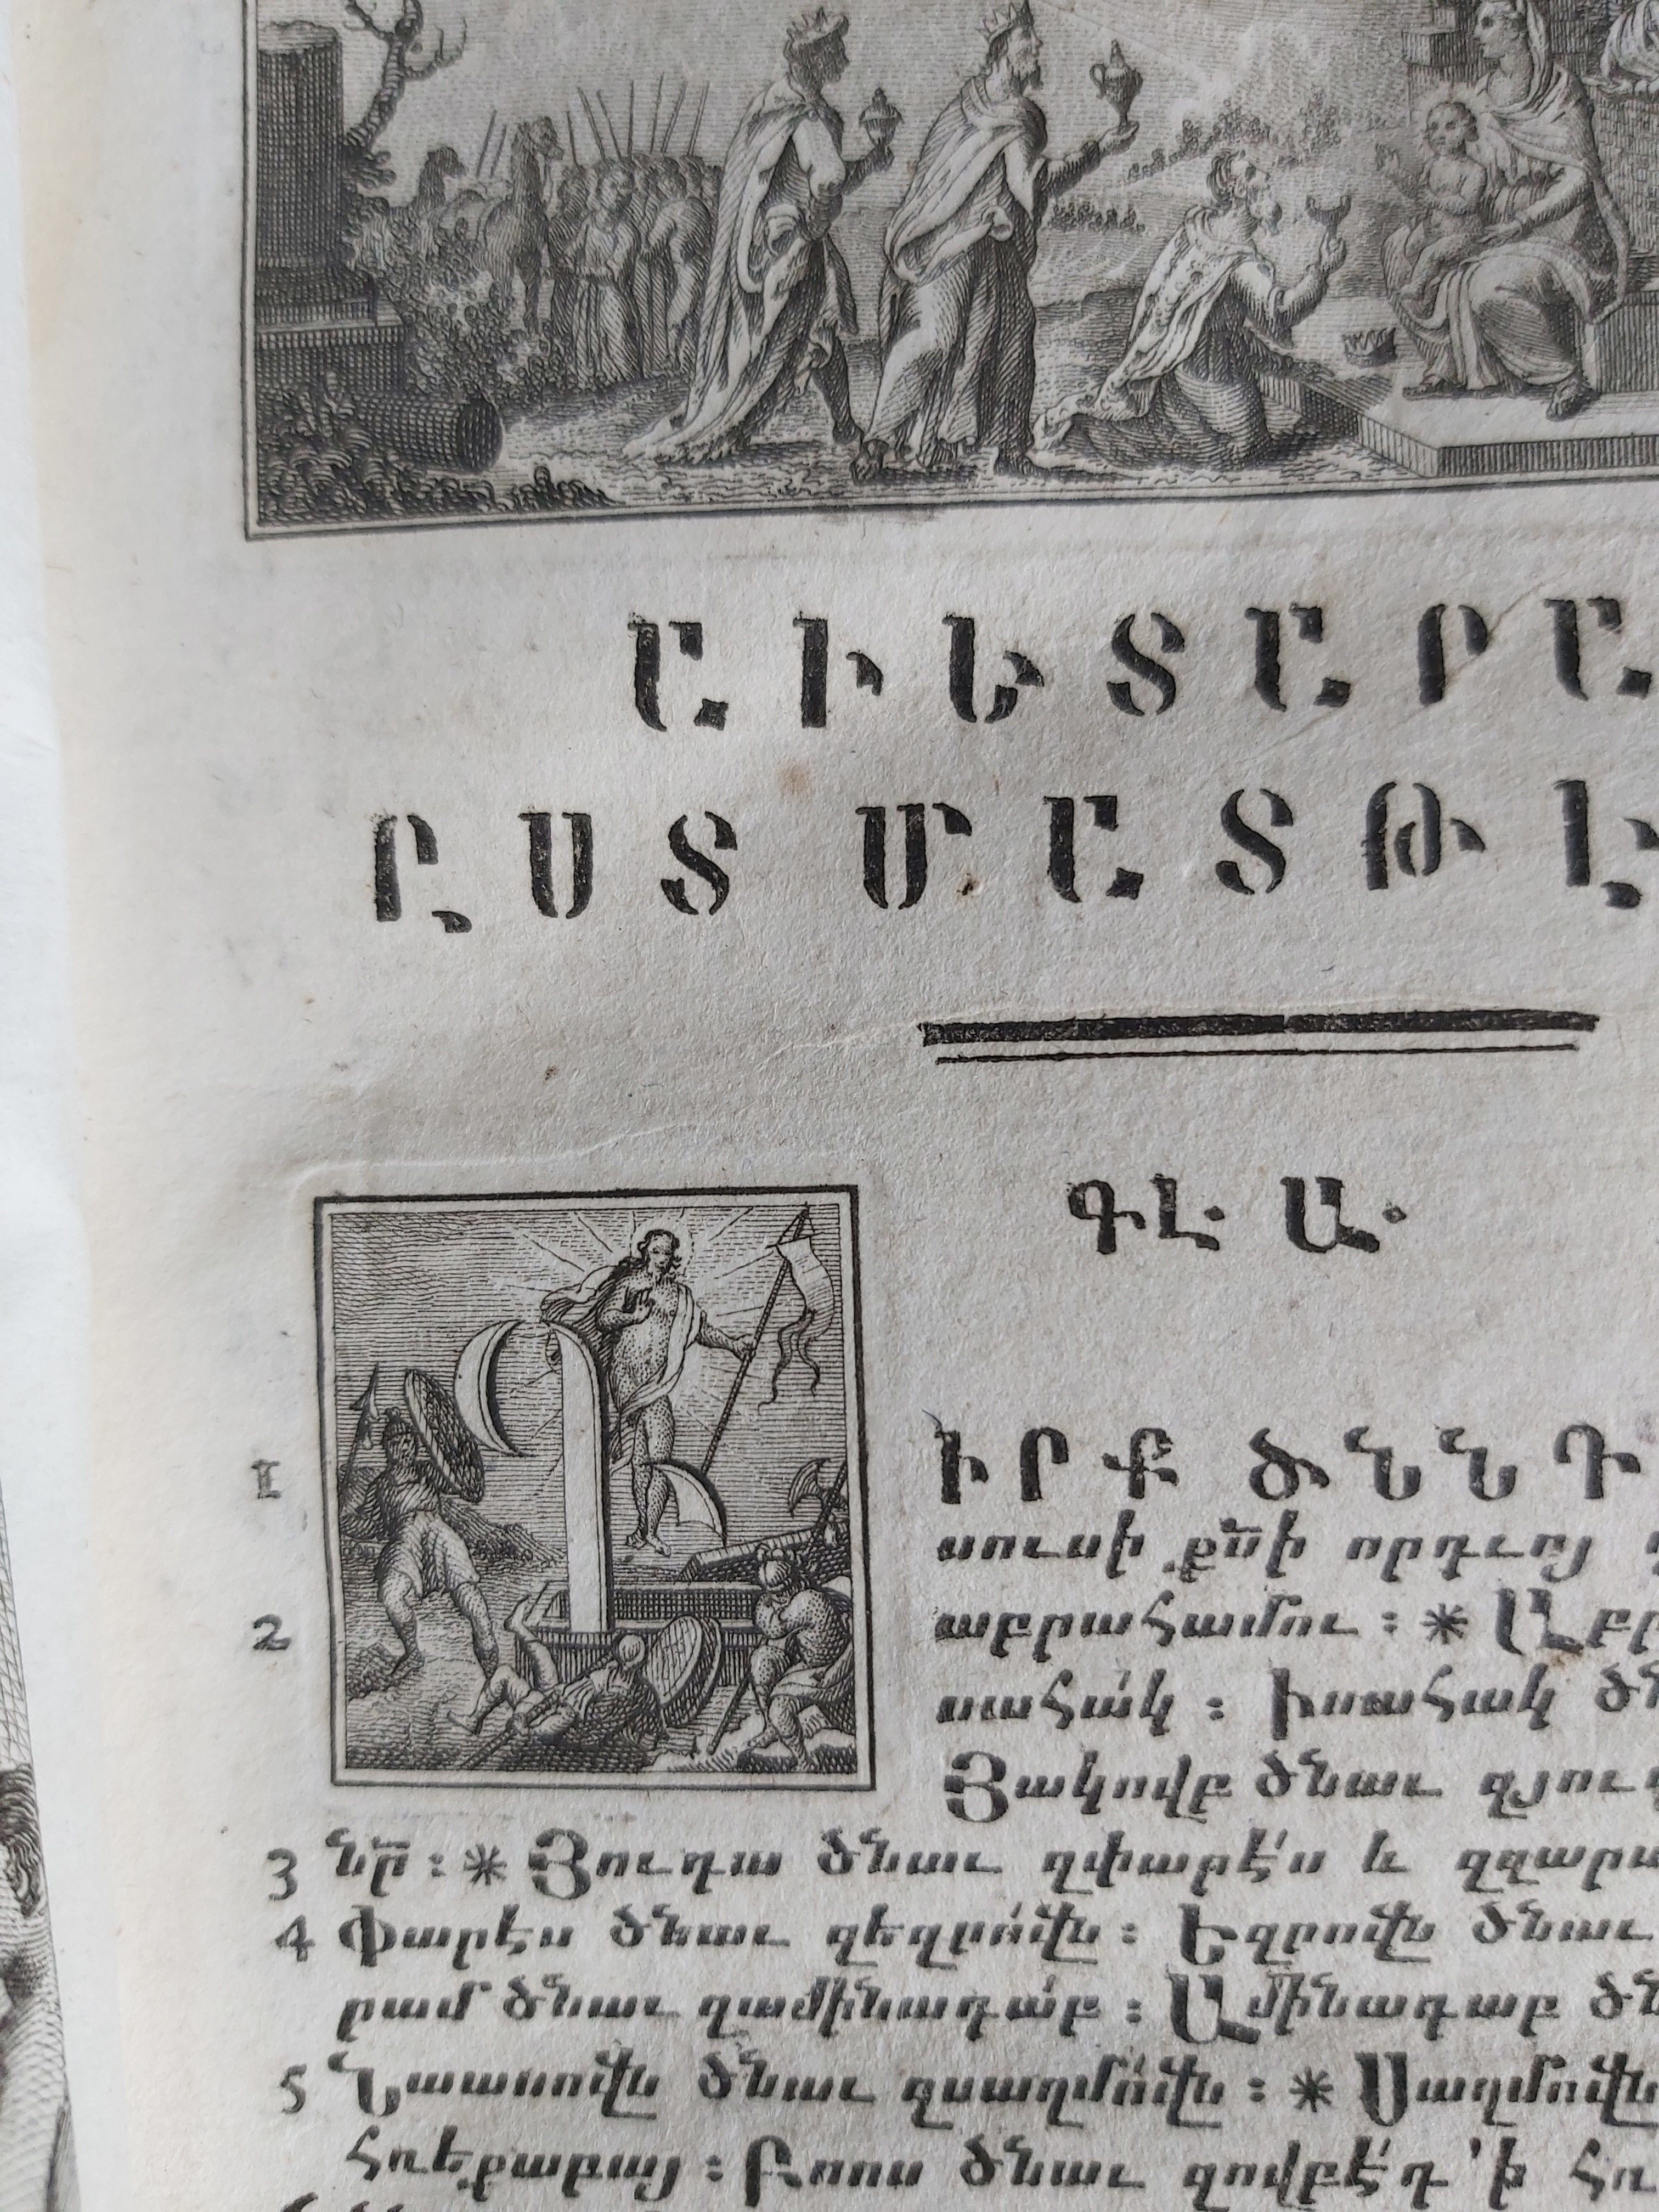 ԱՒԵՏԱՐԱ
ԸՍՏ ՄԱՏԹԷ
ԳԼ. Ա.
1 ԳԻՐՔ ԾՆՆԴ
սուսի քն՟ի որդւոյ
2 աբրահամու : * Աբր
սահա՛կ : Իսահակ ծն
Յակովբ ծնաւ զյու
3 նր՟ : * Յուդա ծնաւ զփարէ՛ս և զզարա
4 Փարէս ծնաւ զեզրո՛վն : Եզրովն ծնաւ
րամ ծնաւ զամինադա՛բ : Ամինադաբ ծն
5 Նաասովն ծնաւ զսաղմո՛վն : * Սաղմովն
հռեքաբայ : Բոոս ծնաւ զովբէ՛դ ՚ի հռ